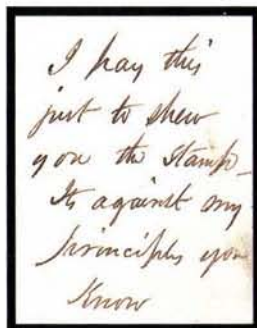 I pay this
just to shew
you the Stamp_
Its against my
principles you
Know